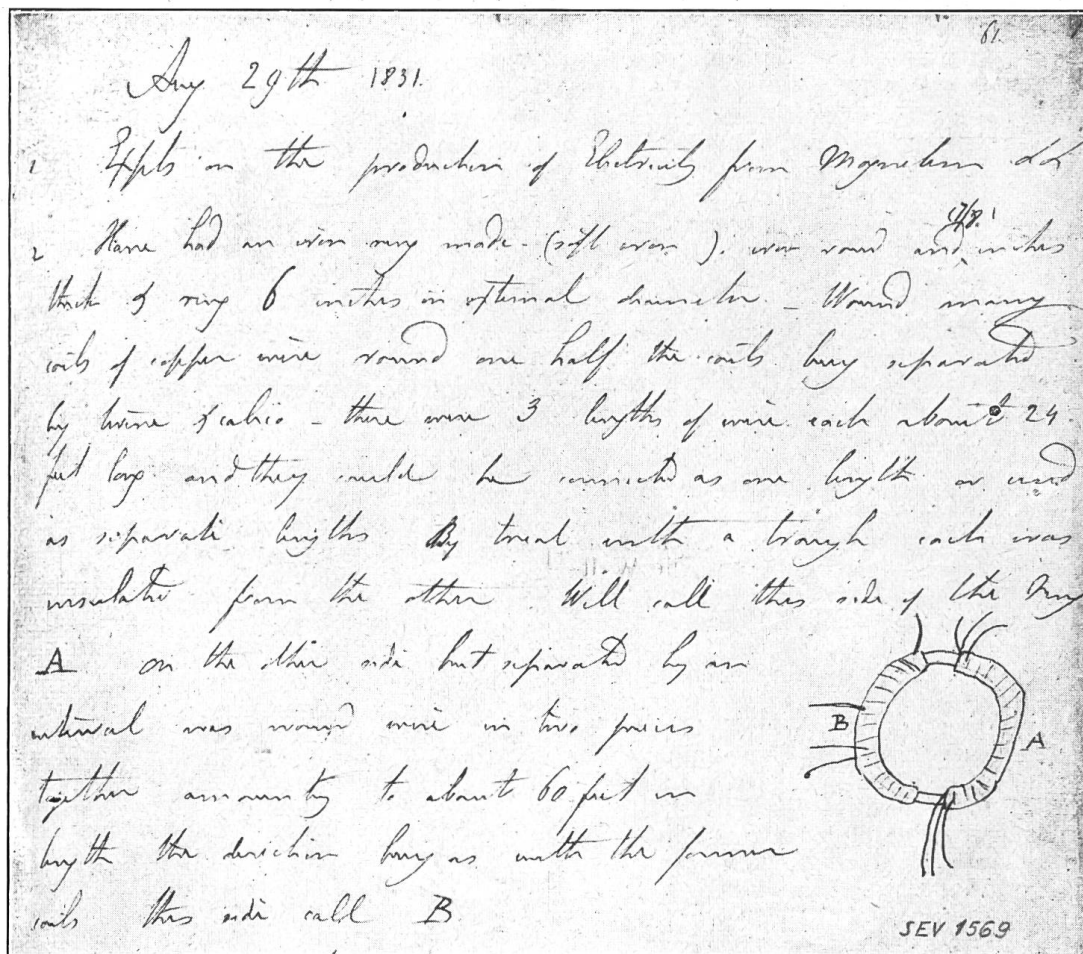 61.
Aug 29th 1831.
1 Expts on the production of Electricity from Magnetism &c &c
(7/8)
2 Have had an iron ring made (soft iron). iron round and inches
thick & ring 6 inches in external diameter. Wound many
coils of copper wire round one half the coils being separated
by twine & calico - there were 3 lengths of wire each about 24
feet long and they could be connected as one length or used
as separate lengths By trial with a trough each was
insulated from the other. Will call this side of the ring
A on the other side but separated by an
interval was wound wire in two pieces
together amounting to about 60 feet in
length the direction being as with the former
coils this side call B
B A
SEV 1569